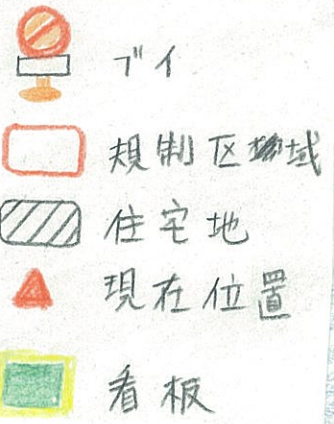 ブイ
規制区域
住宅地
現在位置
看板